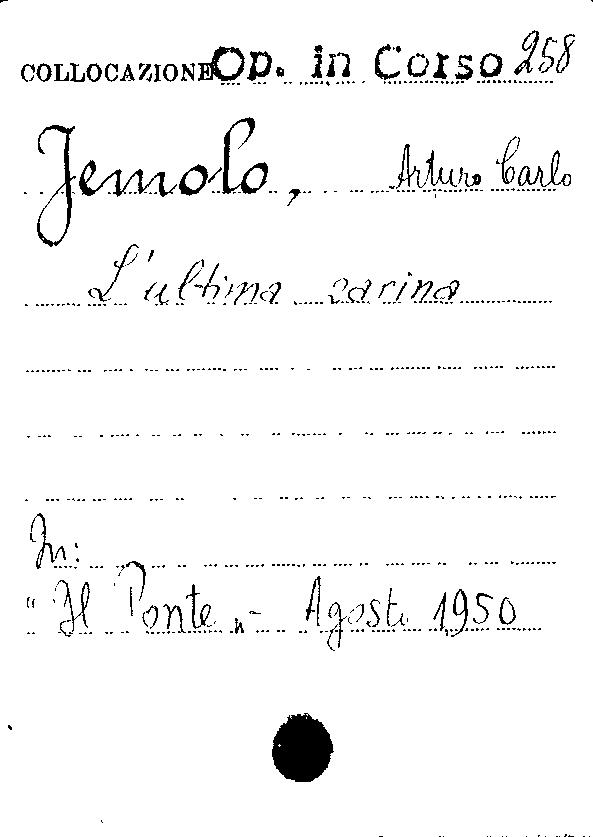 COLLOCAZIONE Op. in Corso 258
Jemolo, Arturo Carlo
L'ultima zarina
In:
"Il Ponte" - Agosto 1950